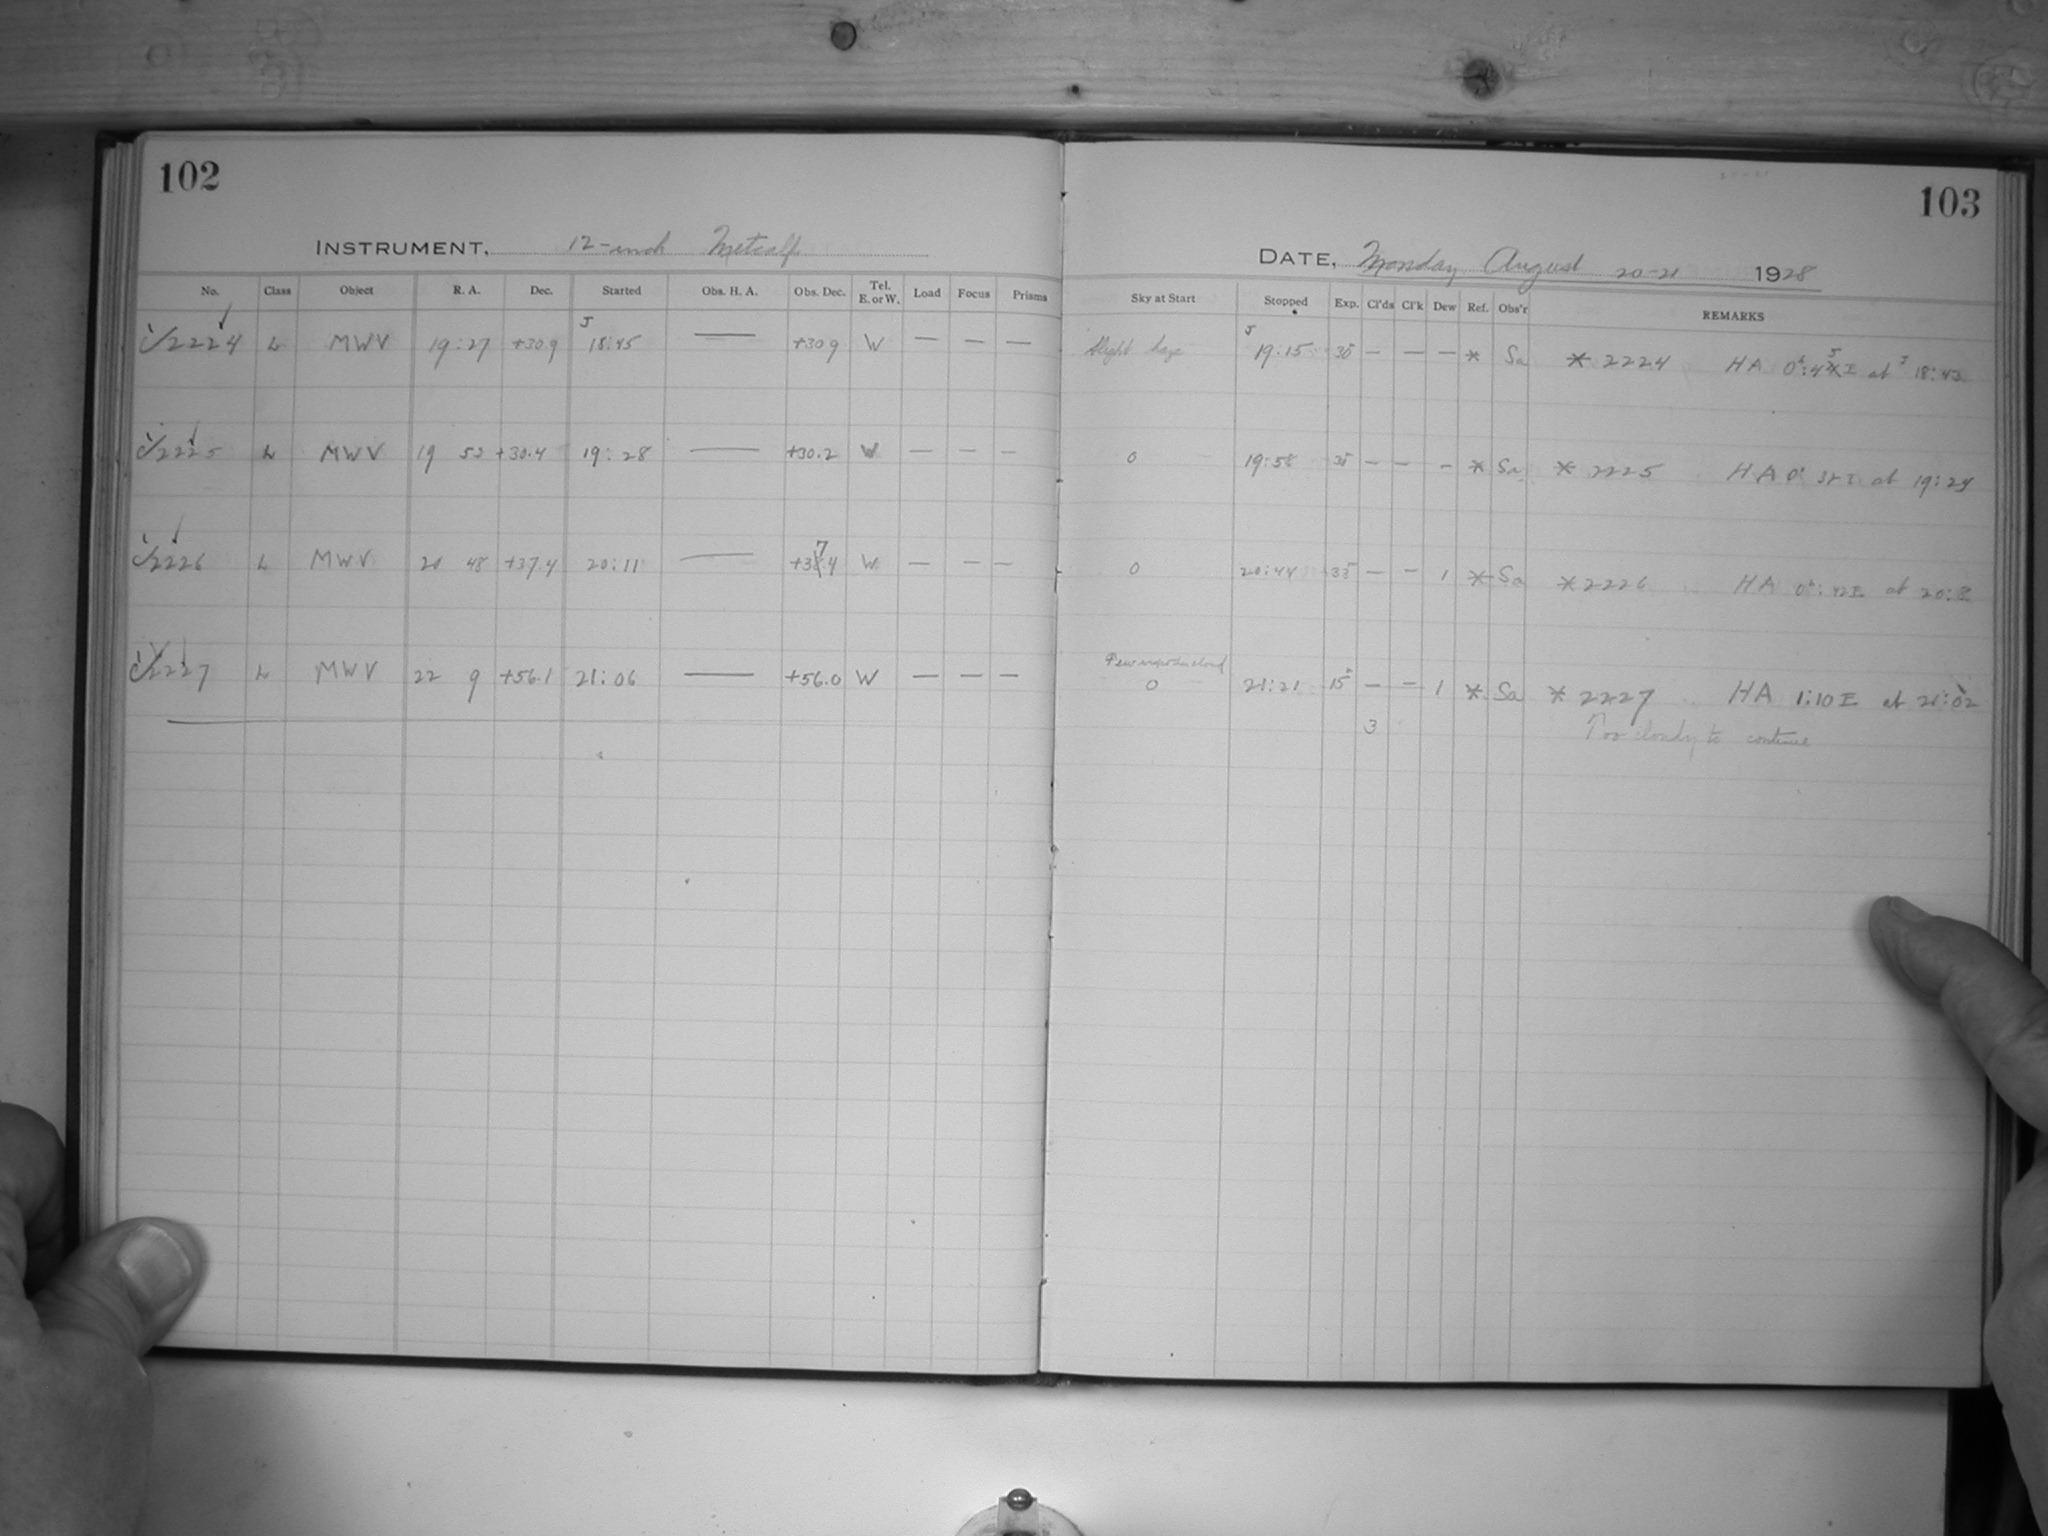 102
INSTRUMENT, 12-inch Metcalf
No. Class Object R. A. Dec. Started Obs. H. A. Obs. Dec. Tel. E. or W. Load Focus Prisms
2224 L MWV 19:27 +30.9 J 18:45 — +30.9 W — — —
2225 L MWV 19 52 +30.4 19:28 — +30.2 W — — —
2226 L MWV 20 48 +37.4 20:11 — +37.4 W — — —
2227 L MWV 22 9 +56.1 21:06 — +56.0 W — — —
103
DATE, Monday August 20-21 1928
Sky at Start Stopped Exp. Cl'ds Cl'k Dew Ref. Obs'r REMARKS
Slight haze J 19:15 30 — — — * Sa * 2224 HA 0h:45 E at J 18:42
0 19:58 30 — — — * Sa * 2225 HA 0h 32 E at 19:24
0 20:44 33 — — 1 * Sa * 2226 HA 0h:42 E at 20:8
0 21:21 15 — — 1 * Sa * 2227 HA 1:10 E at 21:02
3 Too cloudy to continue